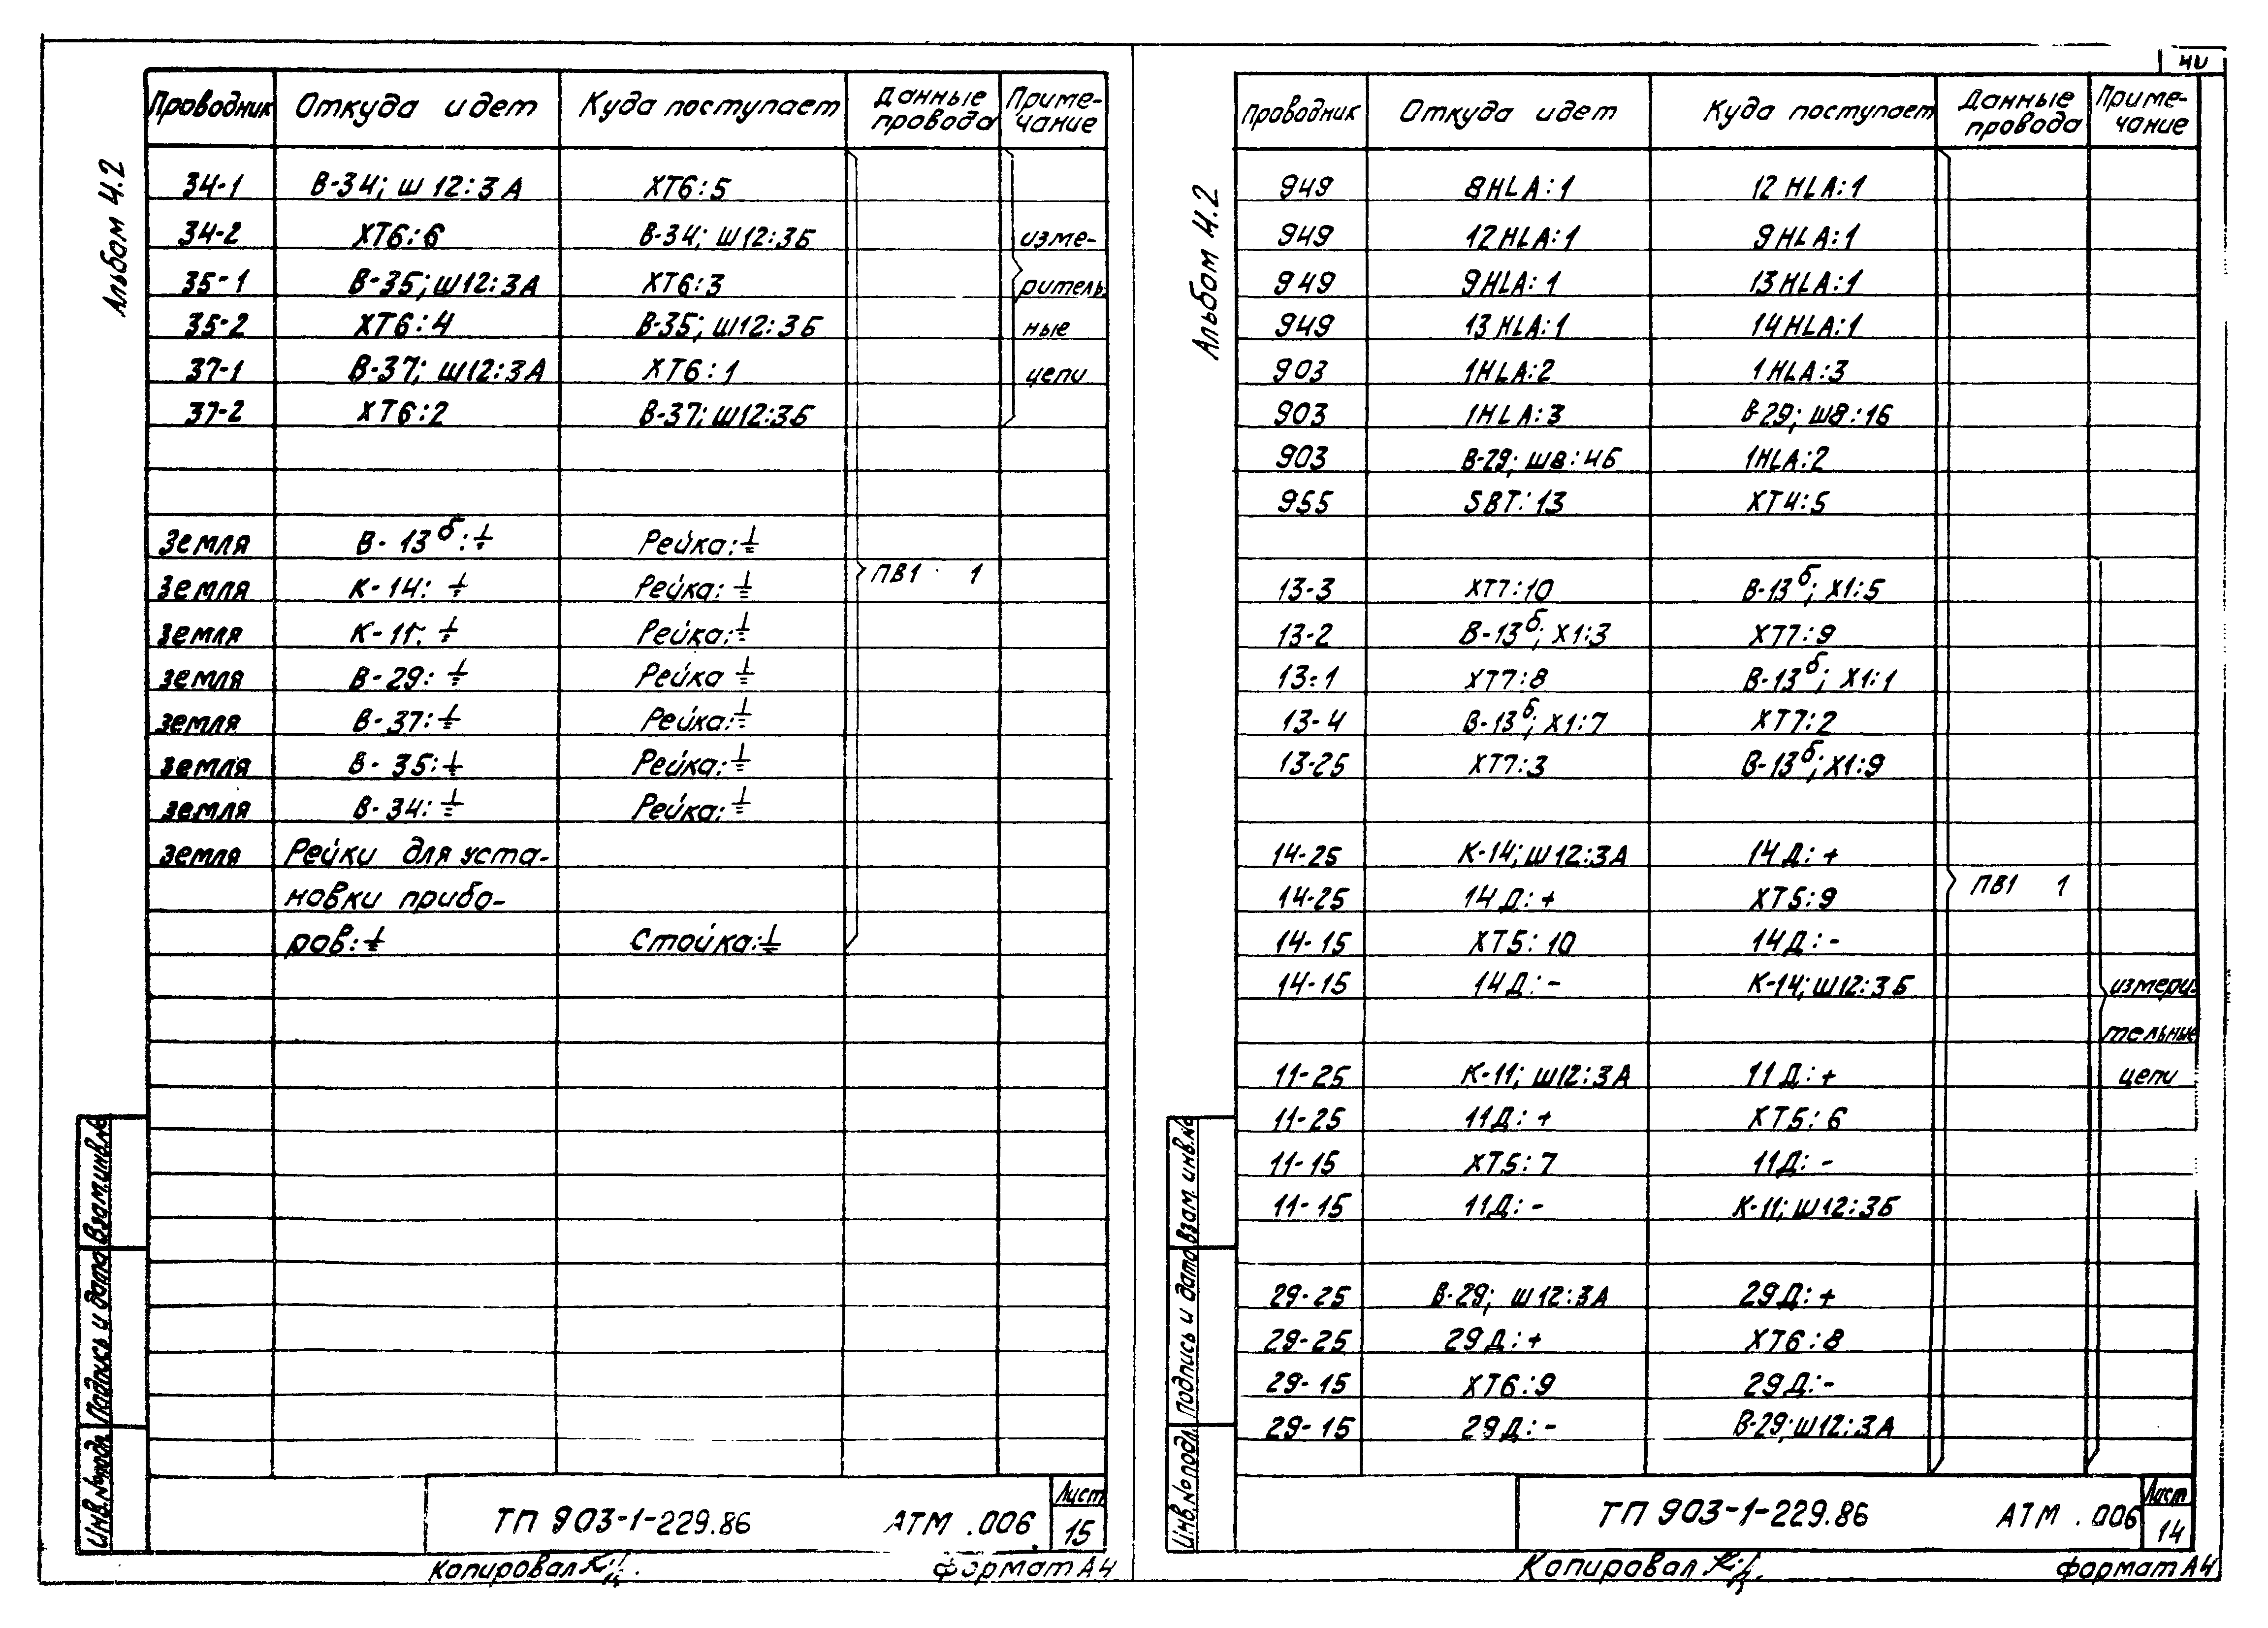 40
Альбом 4.2
Проводник Откуда идет Куда поступает Данные провода Приме-чание
34-1 В-34; Ш12:3А ХТ6:5
34-2 ХТ6:6 В-34; Ш12:3Б изме-
35-1 В-35; Ш12:3А ХТ6:3 ритель
35-2 ХТ6:4 В-35; Ш12:3Б ные
37-1 В-37; Ш12:3А ХТ6:1 цепи
37-2 ХТ6:2 В-37; Ш12:3Б
Земля В-13б:⏚ Рейка:⏚
ПВ1 1
Земля К-14:⏚ Рейка:⏚
Земля К-11:⏚ Рейка:⏚
Земля В-29:⏚ Рейка ⏚
Земля В-37:⏚ Рейка:⏚
Земля В-35:⏚ Рейка:⏚
Земля В-34:⏚ Рейка:⏚
Земля Рейки для уста-
новки прибо-
ров:⏚ Стойка:⏚
Взам.инв.№
Подпись и дата
Инв.№подл.
ТП 903-1-229.86 АТМ .006 Лист 15
Копировал формат А4
Альбом 4.2
Проводник Откуда идет Куда поступает Данные провода Приме-чание
949 8HLA:1 12HLA:1
949 12HLA:1 9HLA:1
949 9HLA:1 13HLA:1
949 13HLA:1 14HLA:1
903 1HLA:2 1HLA:3
903 1HLA:3 В-29; Ш8:1Б
903 В-29; Ш8:4Б 1HLA:2
955 SBT:13 ХТ4:5
13-3 ХТ7:10 В-13б; Х1:5
13-2 В-13б; Х1:3 ХТ7:9
13-1 ХТ7:8 В-13б; Х1:1
13-4 В-13б; Х1:7 ХТ7:2
13-25 ХТ7:3 В-13б; Х1:9
14-25 К-14; Ш12:3А 14Д:+
14-25 14Д:+ ХТ5:9 ПВ1 1
14-15 ХТ5:10 14Д:-
14-15 14Д:- К-14; Ш12:3Б измери-
тельные
11-25 К-11; Ш12:3А 11Д:+ цепи
11-25 11Д:+ ХТ5:6
11-15 ХТ5:7 11Д:-
11-15 11Д:- К-11; Ш12:3Б
29-25 В-29; Ш12:3А 29Д:+
29-25 29Д:+ ХТ6:8
29-15 ХТ6:9 29Д:-
29-15 29Д:- В-29; Ш12:3А
Взам. инв.№
Подпись и дата
Инв.№подл.
ТП 903-1-229.86 АТМ .006 Лист 14
Копировал формат А4